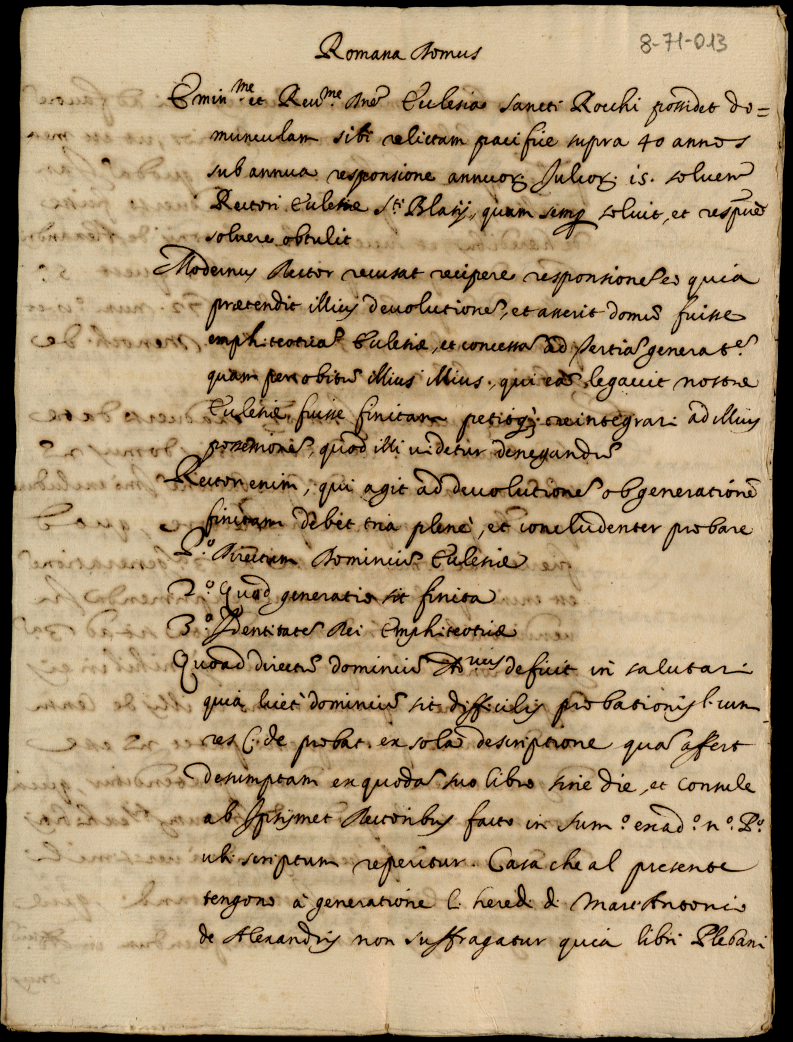 8-71-013
Romana Domus
Emin.me et Reu.me Dne Ecclesia Sancti Rocchi possidet do=
munculam sibi relictam pacifice supra 40 annos
sub annua responsione annuor. Julior. 15. soluen
Rectori Ecclesiae S.ti Blasij, quam semp soluit, et
soluere obtulit
Modernus Rector recusat recipere responsiones ex quia
praetendit illius deuolutione, et asserit domu fuisse
emphiteotica Ecclesiae, et concessa ad tertia generat.e
quam per obitu illius illius, qui ea legauit nostrae
Ecclesiae fuisse finitam petitq; reintegrari ad illius
possessione, quod illi uidetur denegandu
Rector enim, qui agit ad deuolutione ob generatione
finitam debet tria plene, et concludenter probare
P.o Directum Dominiu Ecclesiae
2.o Quod generatio sit finita
3.o Identitate Rei Emphiteoticae
Quoad directu dominiu deficit in salutari
quia licet dominiu sit difficilis probationis l. cum
res C. de probat. ex sola descriptione qua affert
desumptam ex quoda suo libro sine die, et Consule
ab Ipsismet Rectoribus facto in Sum.o exad.o n.o P.o
ubi scriptum reperitur. Casa che al presente
tengono à generatione l. heredi di Marc'Antonio
de Alexandris non suffragatur quia libri Plebani